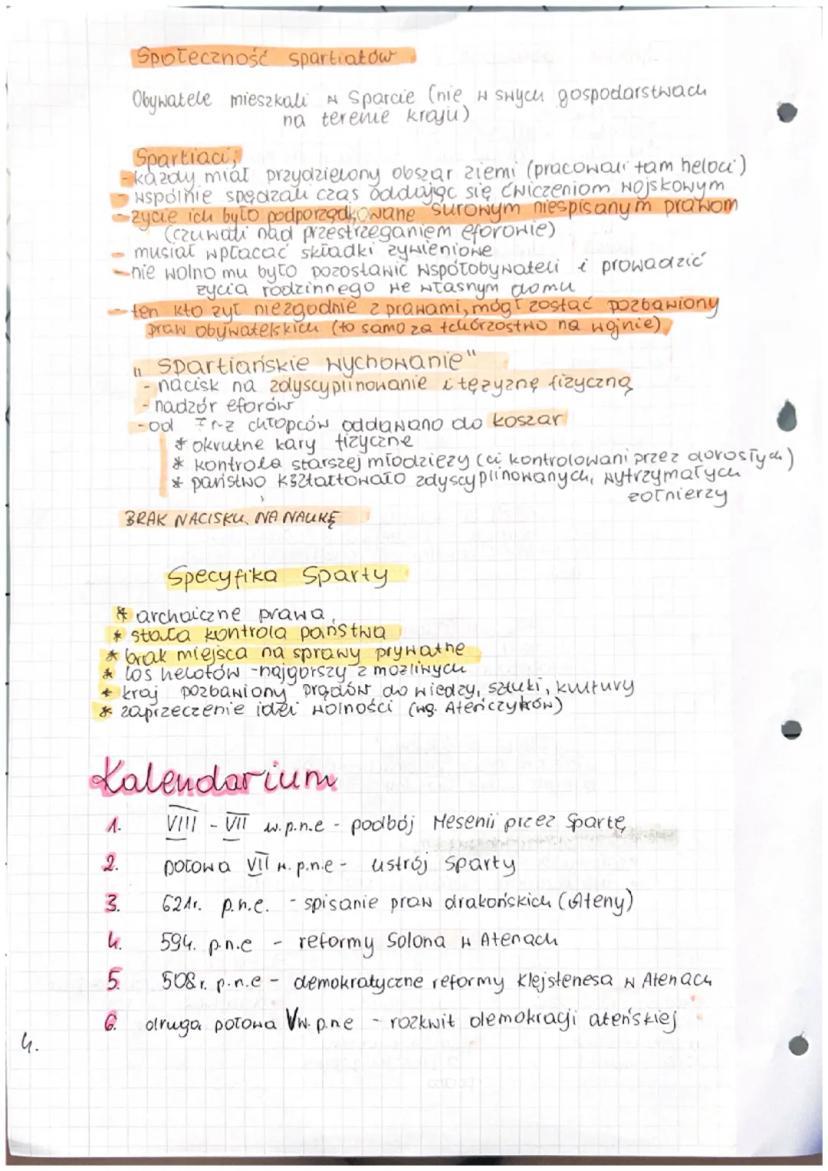 Społeczność spartiatów
Obywatele mieszkali w Sparcie (nie w swych gospodarstwach
na terenie kraju)
Spartiaci;
- każdy miał przydzielony obszar ziemi (pracowali tam heloci)
- wspólnie spędzali czas oddając się ćwiczeniom wojskowym
- życie ich było podporządkowane surowym niespisanym prawom
(czuwali nad przestrzeganiem eforowie)
- musiał wpłacać składki żywieniowe
- nie wolno mu było pozostawić współobywateli i prowadzić
życia rodzinnego we własnym domu
- ten kto żył niezgodnie z prawami, mógł zostać pozbawiony
praw obywatelskich (to samo za tchórzostwo na wojnie)
"Spartiańskie wychowanie"
- nacisk na zdyscyplinowanie i tężyznę fizyczną
- nadzór eforów
- od 7 r-ż chłopców oddawano do koszar
* okrutne kary fizyczne
* kontrola starszej młodzieży (ci kontrolowani przez dorosłych)
* państwo kształtowało zdyscyplinowanych, wytrzymałych
żołnierzy
BRAK NACISKU NA NAUKĘ
Specyfika Sparty
* archaiczne prawa
* stała kontrola państwa
* brak miejsca na sprawy prywatne
* los helotów - najgorszy z możliwych
* kraj pozbawiony prądów do wiedzy, sztuki, kultury
* zaprzeczenie idei wolności (wg. Ateńczyków)
Kalendarium
1. VIII - VII w.p.n.e - podbój Mesenii przez Spartę
2. połowa VII w.p.n.e - ustrój Sparty
3. 621r. p.n.e. - spisanie praw drakońskich (Ateny)
4. 594. p.n.e - reformy Solona w Atenach
5. 508 r. p.n.e - demokratyczne reformy Klejstenesa w Atenach
6. druga połowa V w. p.n.e - rozkwit demokracji ateńskiej
4.